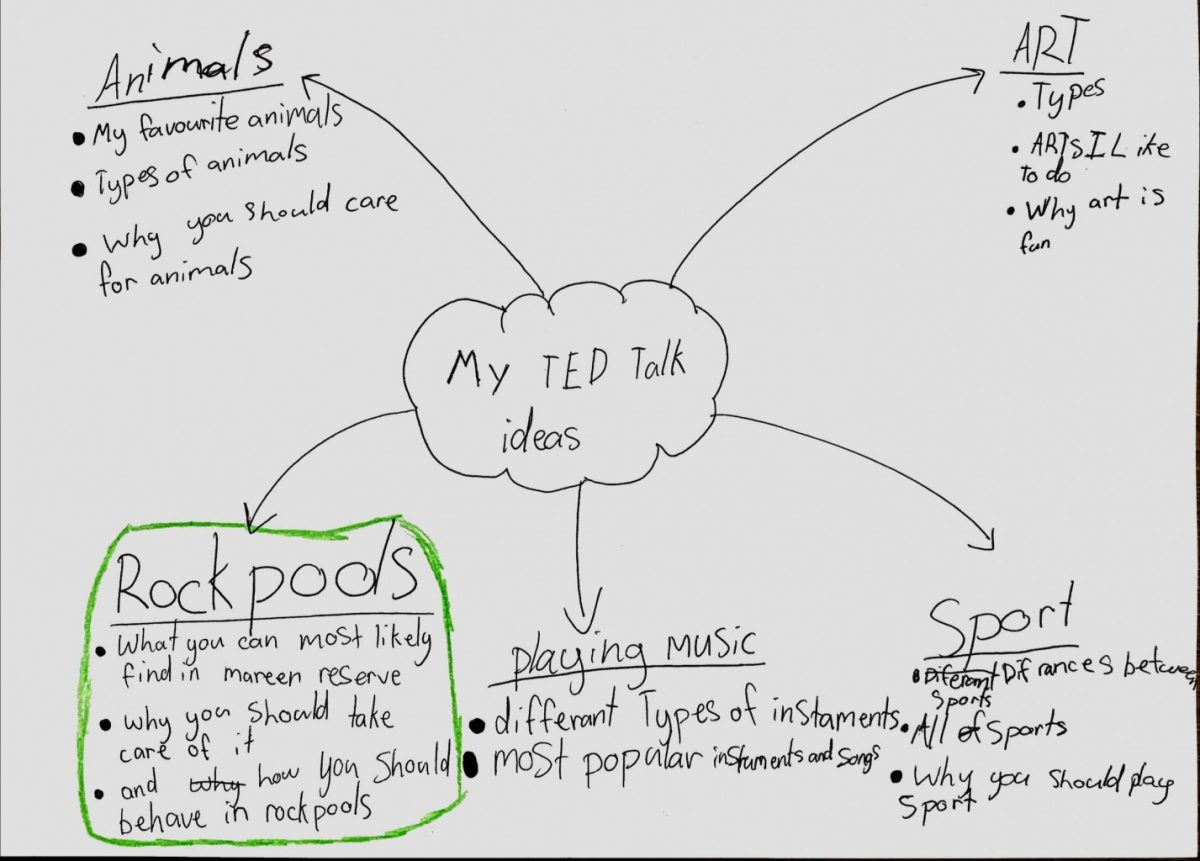 Animals
• My favourite animals
• Types of animals
• Why you should care
for animals
ART
• Types
• ARTS I Like
to do
• Why art is
fun
My TED Talk
ideas
Rockpools
• What you can most likely
find in mareen reserve
• why you should take
care of it
• and why how you should
behave in rockpools
playing music
• differant Types of instaments
• most popular instuments and songs
Sport
• Diferant Difrances between
sports
• All of sports
• Why you should play
sport